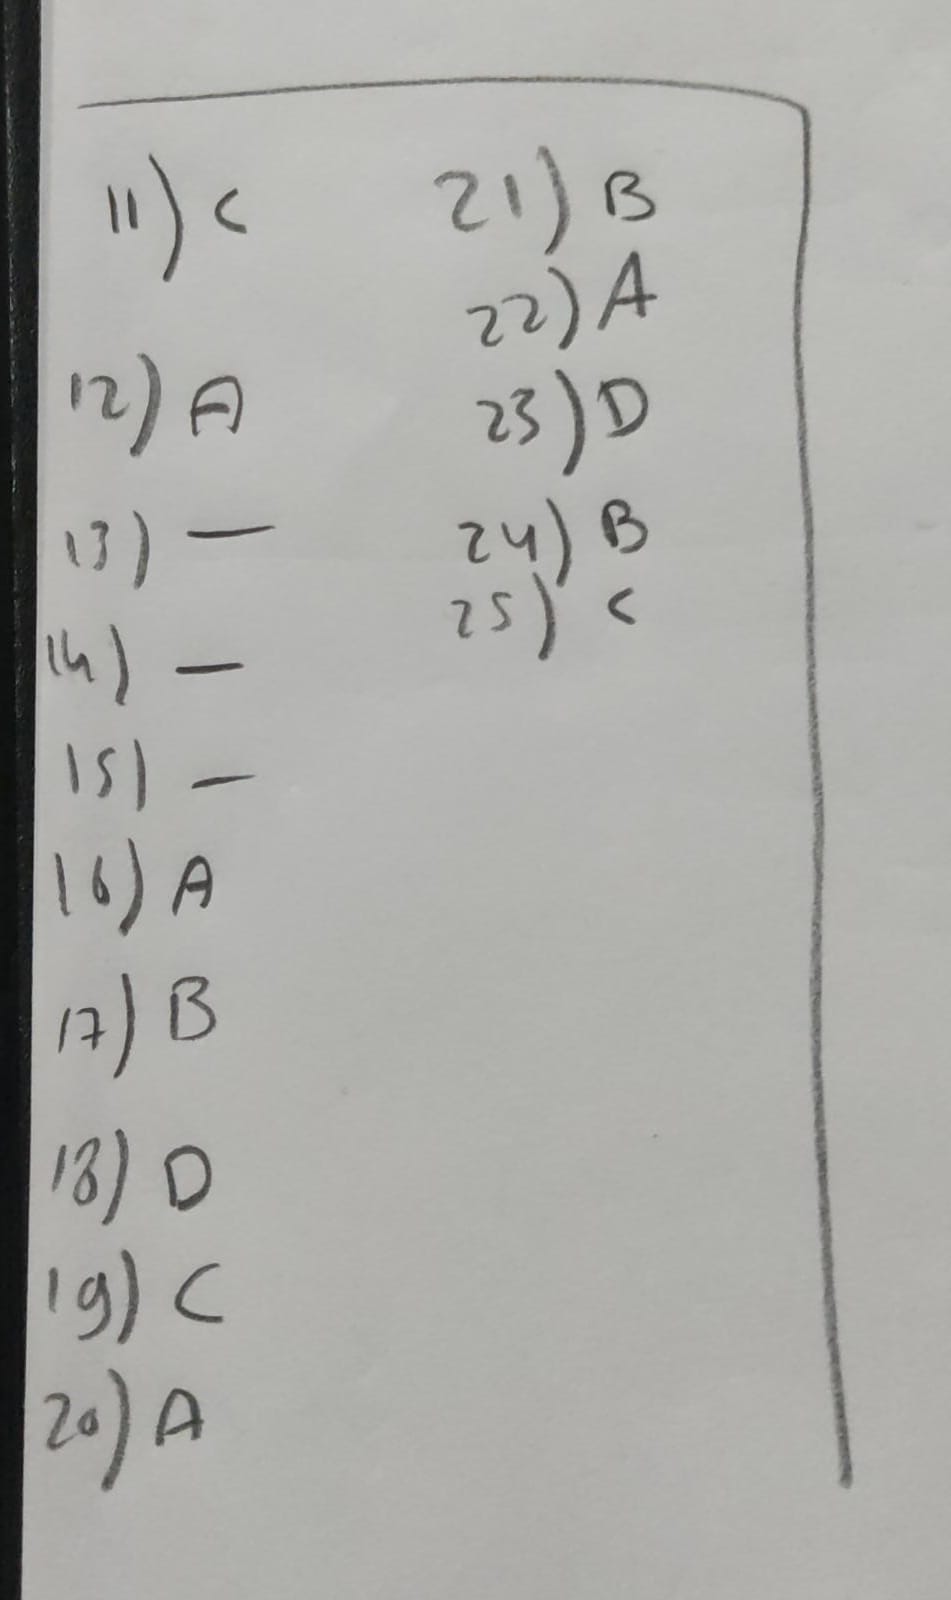 11) C
12) A
13) —
14) —
15) —
16) A
17) B
18) D
19) C
20) A
21) B
22) A
23) D
24) B
25) C